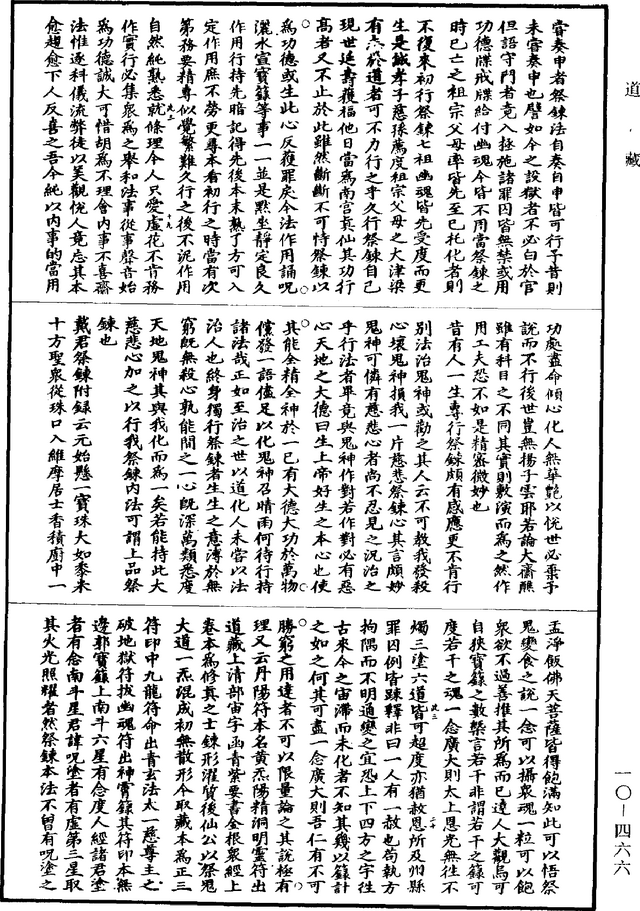 道藏
睿奏申者祭鍊法自奏自申皆可行予昔則
未睿奏申也譬如今之設獄者不必白於官
但語守門者竟入拯施諸罪囚皆無禁或用
功德牒戒牒給付幽魂今皆不用當祭鍊之
時已亡之祖宗父母率皆先至已托化者則
不復來初行祭鍊七祖幽魂皆先受度而更
生是誠孝子慈孫薦度祖宗父母之大津梁
有志於道者可不力行之乎久行祭鍊自己
現世延壽獲福他日當為南宮真仙其功行
高者又不止於此雖然斷斷不可恃祭鍊以
為功德或生此心反獲罪戾今法作用誦呪
灑水宣寶籙等事一一並是默坐靜定良久
作用行持先暗記得先後本末熟了方可入
定作用庶不勞更尋本看初行之時當有次
第務要精專似覺繁難久行之後不泥作用
自然純熟悉就條理今人只愛虛花不肯務
作實行必集眾為之舉和法事從事聲音始
為功德誠大可惜胡為不理會內事不喜齋
法惟逐科儀流弊徒以美觀悅人竟忘其本
愈趨愈下人反喜之吾今純以內事的當用
功處盡命傾心化人無華艷以悅世必棄予
說而不行後世豈無揚子雲耶若論大齋醮
雖有科目之不同其實則敷演而為之然作
用工夫恐不如是精密微妙也
昔有人一生專行祭鍊頗有感應更不肯行
別法治鬼神或勸之其人云不可教我發殺
心壞鬼神損我一片慈悲祭鍊心其言頗妙
鬼神可憐有慈悲心者尚不忍見之況治之
乎行法者畢竟與鬼神作對若作對必有惡
心天地之大德曰生上帝好生之本心也使
其能全精全神於一已有大德大功於萬物
儻發一語儘足以化鬼神召晴雨何待行持
諸法哉正如至治之世以道化人未嘗以法
治人也終身獨行祭鍊者生生之意溥於無
窮既無殺心孰能間之一心既深萬類悉度
天地鬼神其與我化而為一矣若能持此大
慈悲心加之以行我祭鍊內法可謂上品祭
鍊也
戴君祭鍊附錄云元始懸一寶珠大如黍米
十方聖眾從珠口入維摩居士香積廚中一
盂淨飯佛天菩薩皆得飽滿知此可以悟祭
鬼變食之說一念可以攝眾魂一粒可以飽
眾欲不過善推其所為而已達人大觀焉可
自狹寶籙之數槩言若干非謂若干之籙可
度若干之魂一念廣大則太上恩光無往不
燭三塗六道皆可超度亦猶赦恩所及州縣
罪囚例皆踈釋非曰一人有一赦也苟執方
拘隅而不明通變之宜恐上下四方之宇往
古來今之宙滯而未化者不知其幾以籙計
之如之何其可盡一念廣大則吾仁有不可
勝窮之用達者不可以限量論之其說極有
理又云丹陽符本名黃炁陽精洞明靈符出
道藏上清部宙字函青紫要書金根眾經上
卷本為修真之士鍊形濯質後仙公以祭鬼
大道一炁混成初無散形今取藏本為正三
符印中九龍符命出青玄法太一慈尊主之
破地獄符拔幽魂符出神霄籙其符印本無
邊郭寶籙上南斗六星有念度人經諸君塗
者有念南斗星君諱呪塗者有虛第三星取
其火光照耀者然祭鍊本法不曾有呪塗之
一〇—四六六